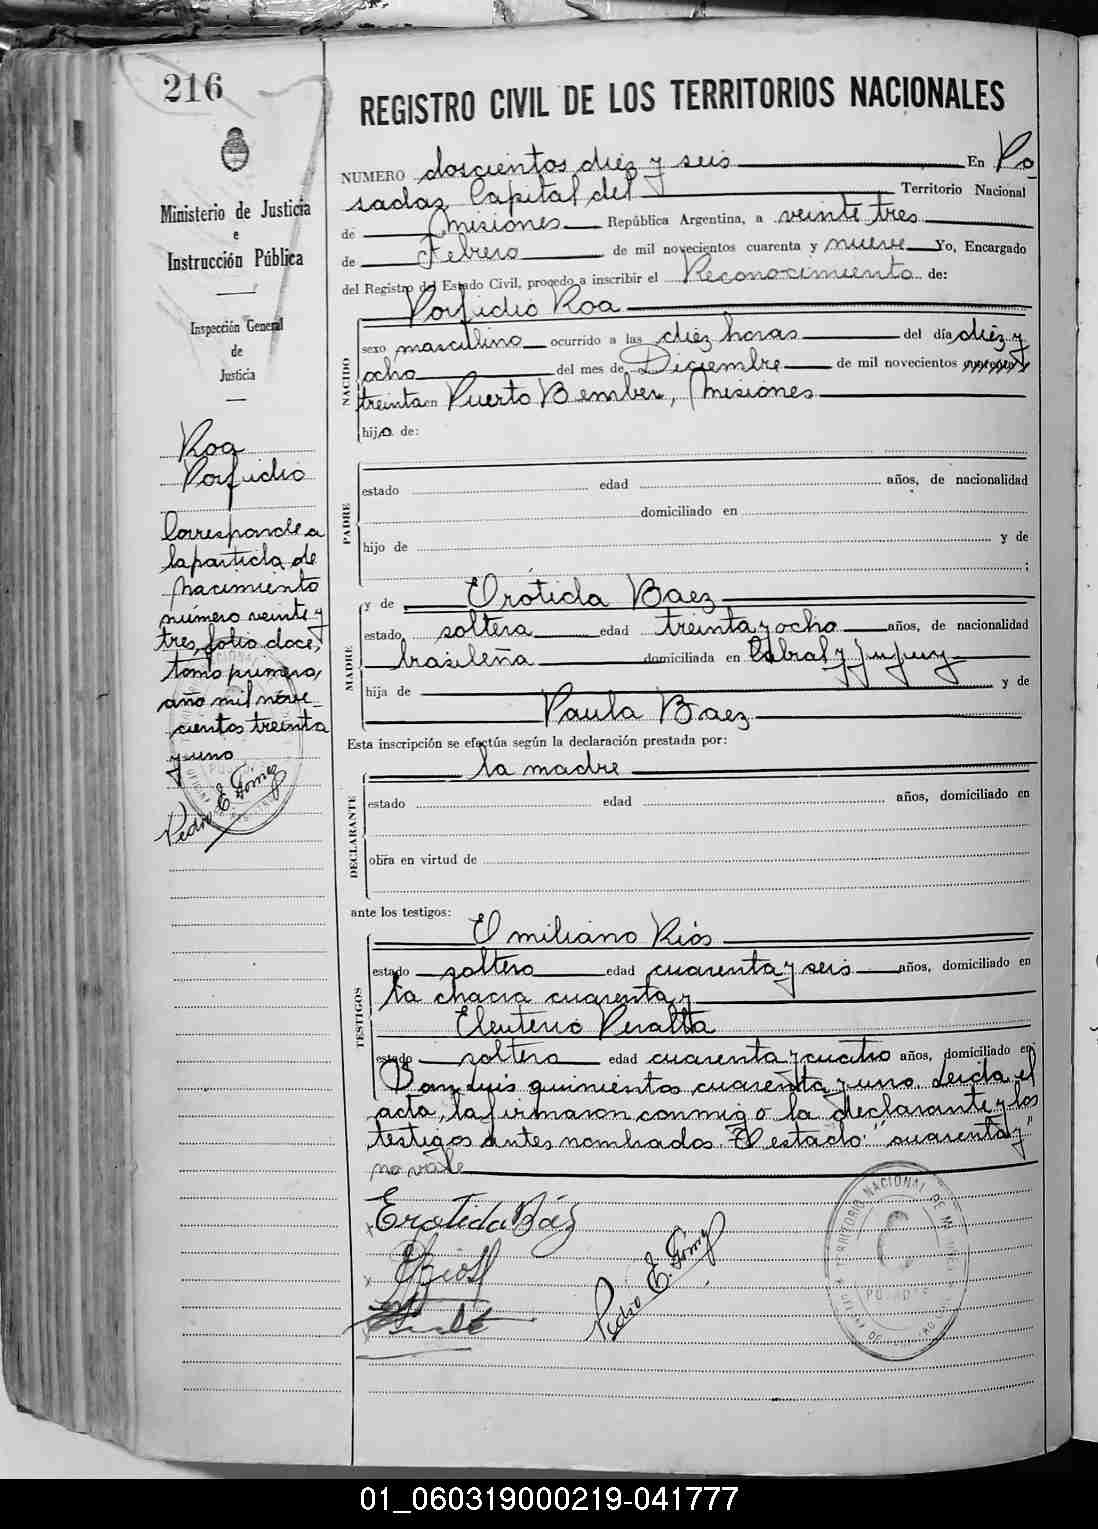 216
REGISTRO CIVIL DE LOS TERRITORIOS NACIONALES
Ministerio de Justicia
e
Instrucción Pública
Inspección General
de
Justicia
Roa
Porfidio
Corresponde a
la partida de
nacimiento
número veinte y
tres, folio doce,
tomo primero,
año mil nove-
cientos treinta
y uno
Pedro E. Gómez
NUMERO doscientos diez y seis En Po
sadas Capital del Territorio Nacional
de Misiones República Argentina, a veinte tres
de Febrero de mil novecientos cuarenta y nueve Yo, Encargado
del Registro del Estado Civil, procedo a inscribir el Reconocimiento de:
Porfidio Roa
NACIDO
sexo masculino ocurrido a las diez horas del día diez y
ocho del mes de Diciembre de mil novecientos cuarenta y
treinta en Puerto Bember, Misiones
hijo de:
PADRE
estado edad años, de nacionalidad
domiciliado en
hijo de y de
;
MADRE
y de Erotida Baez
estado soltera edad treinta y ocho años, de nacionalidad
brasileña domiciliada en Cabral y Jujuy
hija de y de
Paula Baez
Esta inscripción se efectúa según la declaración prestada por:
la madre
DECLARANTE
estado edad años, domiciliado en
obra en virtud de
ante los testigos:
TESTIGOS
Emiliano Riós
estado soltero edad cuarenta y seis años, domiciliado en
la chacra cuarenta y
Eleuterio Peralta
estado soltero edad cuarenta y cuatro años, domiciliado en
San Luis quinientos cuarenta y uno. Leida el
acta, la firmaron conmigo la declarante y los
testigos antes nombrados. El estado: "cuarenta y"
no vale
Erotida Báez
E Rios
Pedro E. Gómez
TERRITORIO NACIONAL DE MISIONES
POSADAS
01_060319000219-041777